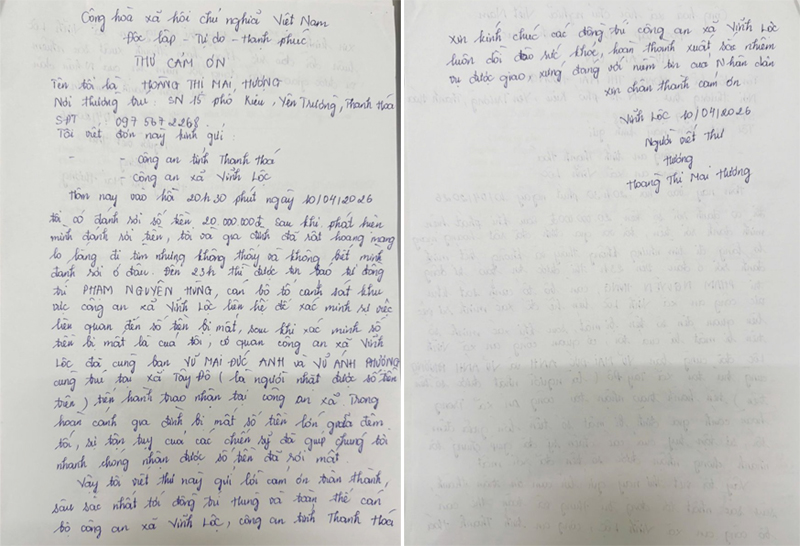 Cộng hòa xã hội chủ nghĩa Việt Nam
Độc lập - Tự do - Hạnh phúc
THƯ CẢM ƠN
Tên tôi là HOÀNG THỊ MAI HƯƠNG
Nơi thường trú: SN 15 phố Kiểu, Yên Trường, Thanh Hoá
SĐT 097 567 2268
Tôi viết đơn này kính gửi:
- công an tỉnh Thanh Hoá
- công an xã Vĩnh Lộc
Hôm nay vào hồi 20h30 phút ngày 10/04/2026
tôi có đánh rơi số tiền 20.000.000đ sau khi phát hiện
mình đánh rơi tiền, tôi và gia đình đã rất hoang mang
lo lắng đi tìm nhưng không thấy và không biết mình
đánh rơi ở đâu. Đến 23h thì được tin báo từ đồng
trí PHẠM NGUYÊN HÙNG, cán bộ tổ cảnh sát khu
vực công an xã Vĩnh Lộc liên hệ để xác minh sự việc
liên quan đến số tiền bị mất, sau khi xác minh số
tiền bị mất là của tôi, cơ quan công an xã Vĩnh
Lộc đã cùng bạn VŨ MAI ĐỨC ANH và VŨ ÁNH PHƯƠNG
cùng trú tại xã Tây Đô (là người nhặt được số tiền
trên) tiến hành trao nhận tại công an xã. Trong
hoàn cảnh gia đình bị mất số tiền lớn giữa đêm
tối, sự tận tuỵ của các chiến sỹ đã giúp chúng tôi
nhanh chóng nhận được số tiền đã rơi mất.
Vậy tôi viết thư này gửi lời cảm ơn chân thành,
sâu sắc nhất tới đồng trí Hùng và toàn thể cán
bộ công an xã Vĩnh Lộc, công an tỉnh Thanh Hoá
Xin kính chúc các đồng trí công an xã Vĩnh Lộc
luôn dồi dào sức khỏe, hoàn thành xuất sắc nhiệm
vụ được giao, xứng đáng với niềm tin của Nhân dân
xin chân thành cảm ơn
Vĩnh Lộc 10/04/2026
Người viết thư
Hương
Hoàng Thị Mai Hương